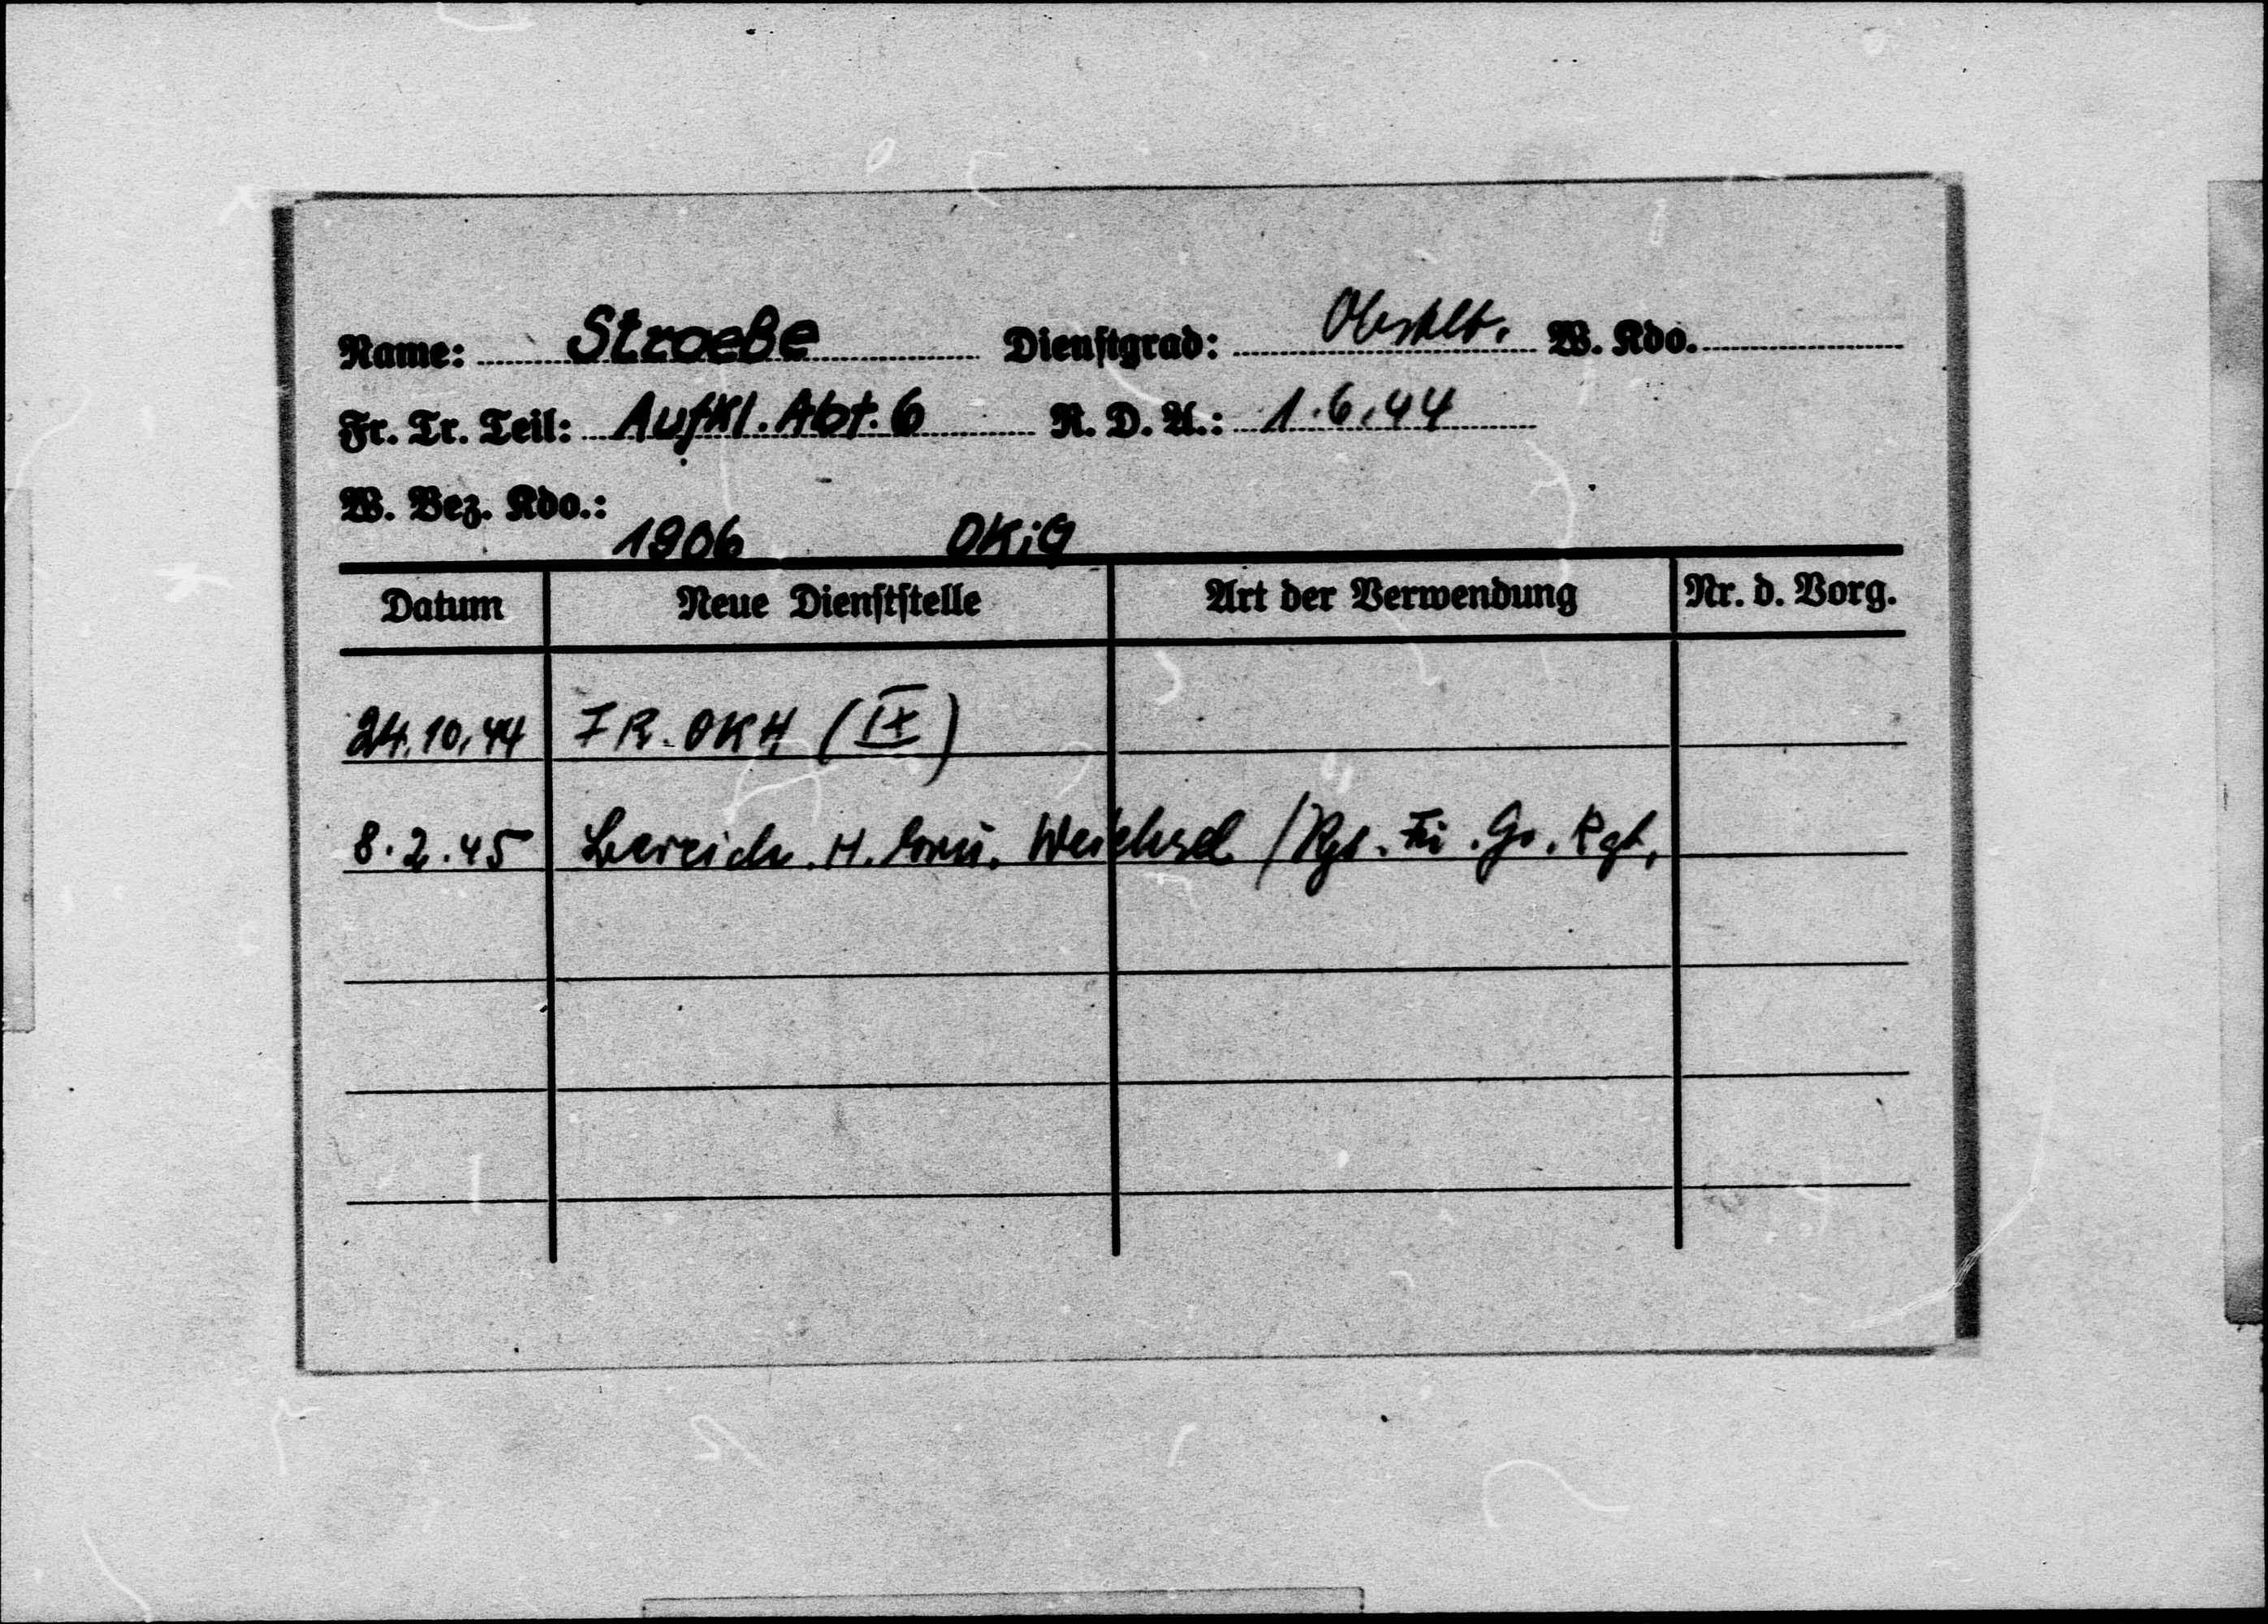 Name: Stroebe Dienstgrad: Obstlt. W. Kdo.
Fr. Tr. Teil: Aufkl. Abt. 6 R. D. A.: 1.6.44
W. Bez. Kdo.:
1906 DKiG
Datum Neue Dienststelle Art der Verwendung Nr. d. Vorg.
24.10.44 FR. OKH (IX)
8.2.45 Bereich. H. Gru. Weichsel / Rgt. Fü. Gr. Rgt.